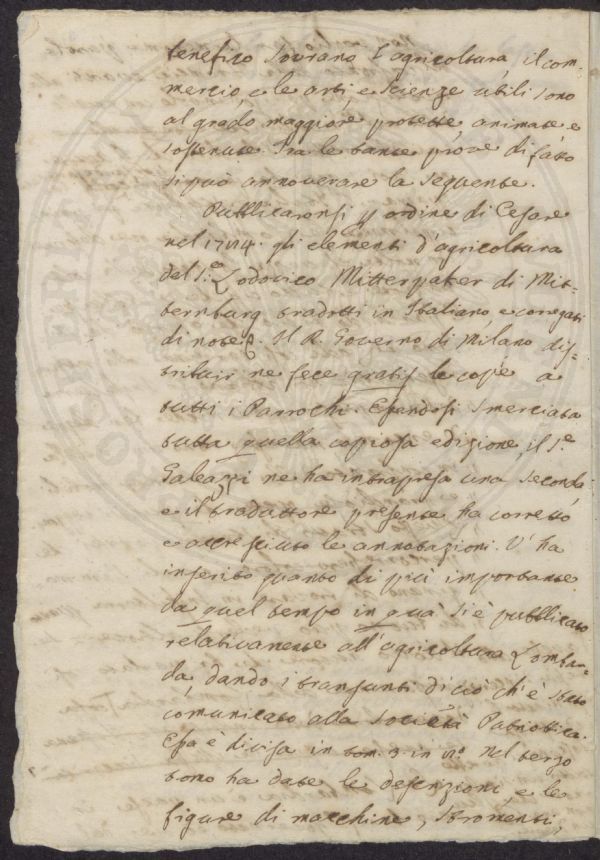 benefico Sovrano l'agricoltura, il com-
mercio, e le arti, e scienze utili sono
al grado maggiore protette animate e
sostenute. Tra le tante prove di fatto
si può annoverare la seguente.
Pubblicaronsi p ordine di Cesare
nel 1784. gli elementi d'agricoltura
del Sr. Lodovico Mitterpaker di Mit-
ternburg tradotti in Italiano e corredati
di note. Il R. Governo di Milano dis-
tribuir ne fece gratis le copie a
tutti i Parrochi. Essendosi smerciata
tutta quella copiosa edizione il Sr.
Galeazzi ne ha intrapresa una seconda
e il traduttore presente ha corretto
e accresciuto le annotazioni. V'ha
inserito quanto di più importante
da quel tempo in quà si è pubblicato
relativamente all'agricoltura Lombar-
da, dando i transunti di ciò ch'è stato
comunicato alla Società Patriottica.
Essa è divisa in tom. 3 in 8o. Nel terzo
tomo ha date le descrizioni, e le
figure di macchine, stromenti,